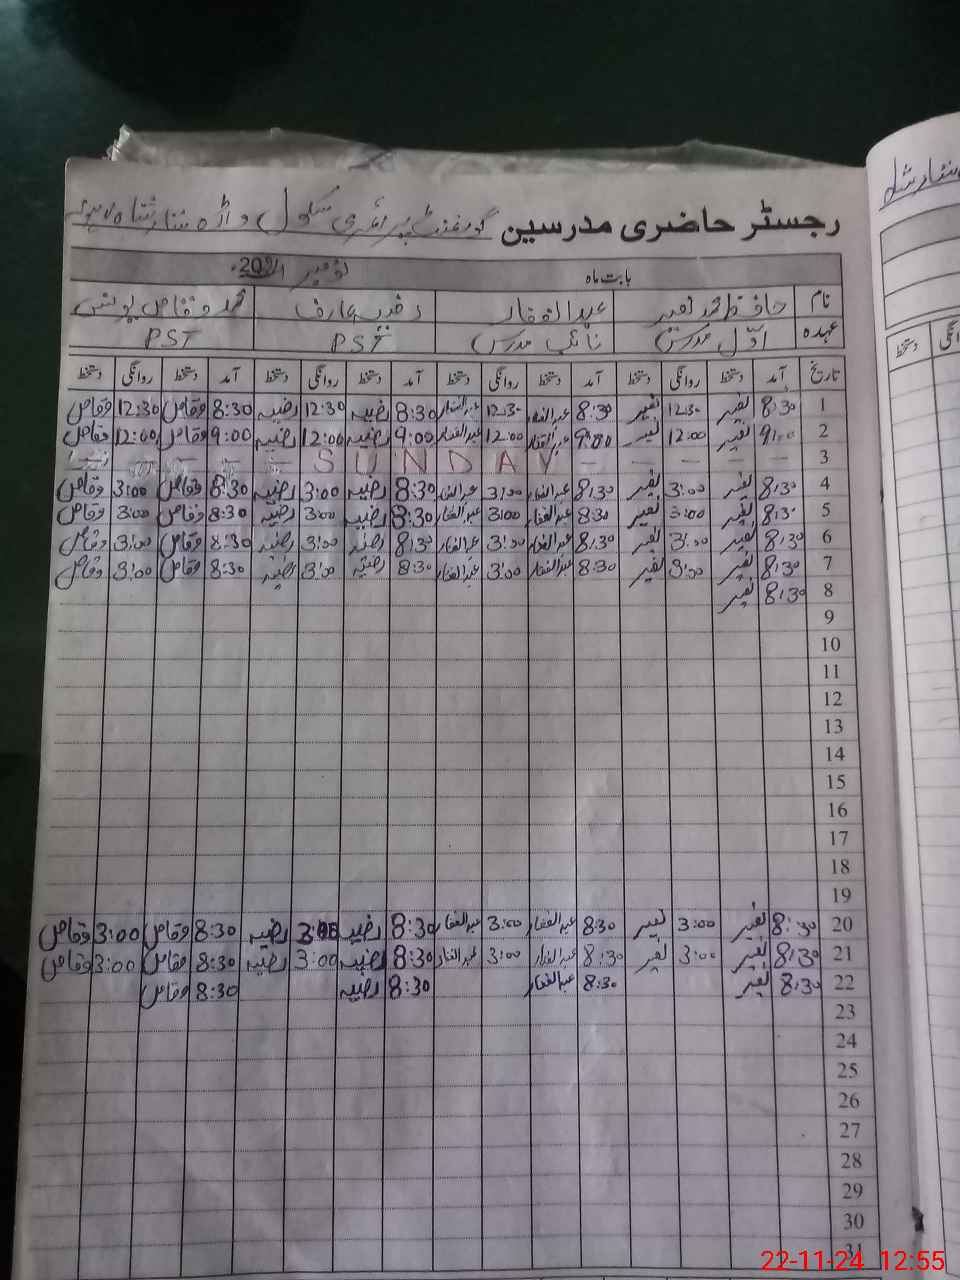 رجسٹر حاضری مدرسین گورنمنٹ پرائمری سکول
بابت ماہ نومبر
نام حافظ محمد نصیر عبدالغفار رضیہ عارف محمد وقاص یونس
عہدہ اوّل مدرس نائب مدرس PST PST
تاریخ آمد دستخط روانگی دستخط آمد دستخط روانگی دستخط آمد دستخط روانگی دستخط آمد دستخط روانگی دستخط
1 8:30 نصیر 12:30 نصیر 8:30 عبدالغفار 12:30 عبدالغفار 8:30 رضیہ 12:30 رضیہ 8:30 وقاص 12:30 وقاص
2 9:00 نصیر 12:00 نصیر 9:00 عبدالغفار 12:00 عبدالغفار 9:00 رضیہ 12:00 رضیہ 9:00 وقاص 12:00 وقاص
3 - - - - - SUNDAY - - -
4 8:30 نصیر 3:00 نصیر 8:30 عبدالغفار 3:00 عبدالغفار 8:30 رضیہ 3:00 رضیہ 8:30 وقاص 3:00 وقاص
5 8:30 نصیر 3:00 نصیر 8:30 عبدالغفار 3:00 عبدالغفار 8:30 رضیہ 3:00 رضیہ 8:30 وقاص 3:00 وقاص
6 8:30 نصیر 3:00 نصیر 8:30 عبدالغفار 3:00 عبدالغفار 8:30 رضیہ 3:00 رضیہ 8:30 وقاص 3:00 وقاص
7 8:30 نصیر 3:00 نصیر 8:30 عبدالغفار 3:00 عبدالغفار 8:30 رضیہ 3:00 رضیہ 8:30 وقاص 3:00 وقاص
8 8:30 نصیر
9
10
11
12
13
14
15
16
17
18
19
20 8:30 نصیر 3:00 نصیر 8:30 عبدالغفار 3:00 عبدالغفار 8:30 رضیہ 3:00 رضیہ 8:30 وقاص 3:00 وقاص
21 8:30 نصیر 3:00 نصیر 8:30 عبدالغفار 3:00 عبدالغفار 8:30 رضیہ 3:00 رضیہ 8:30 وقاص 3:00 وقاص
22 8:30 نصیر 8:30 عبدالغفار 8:30 رضیہ 8:30 وقاص
23
24
25
26
27
28
29
30
31
22-11-24 12:55